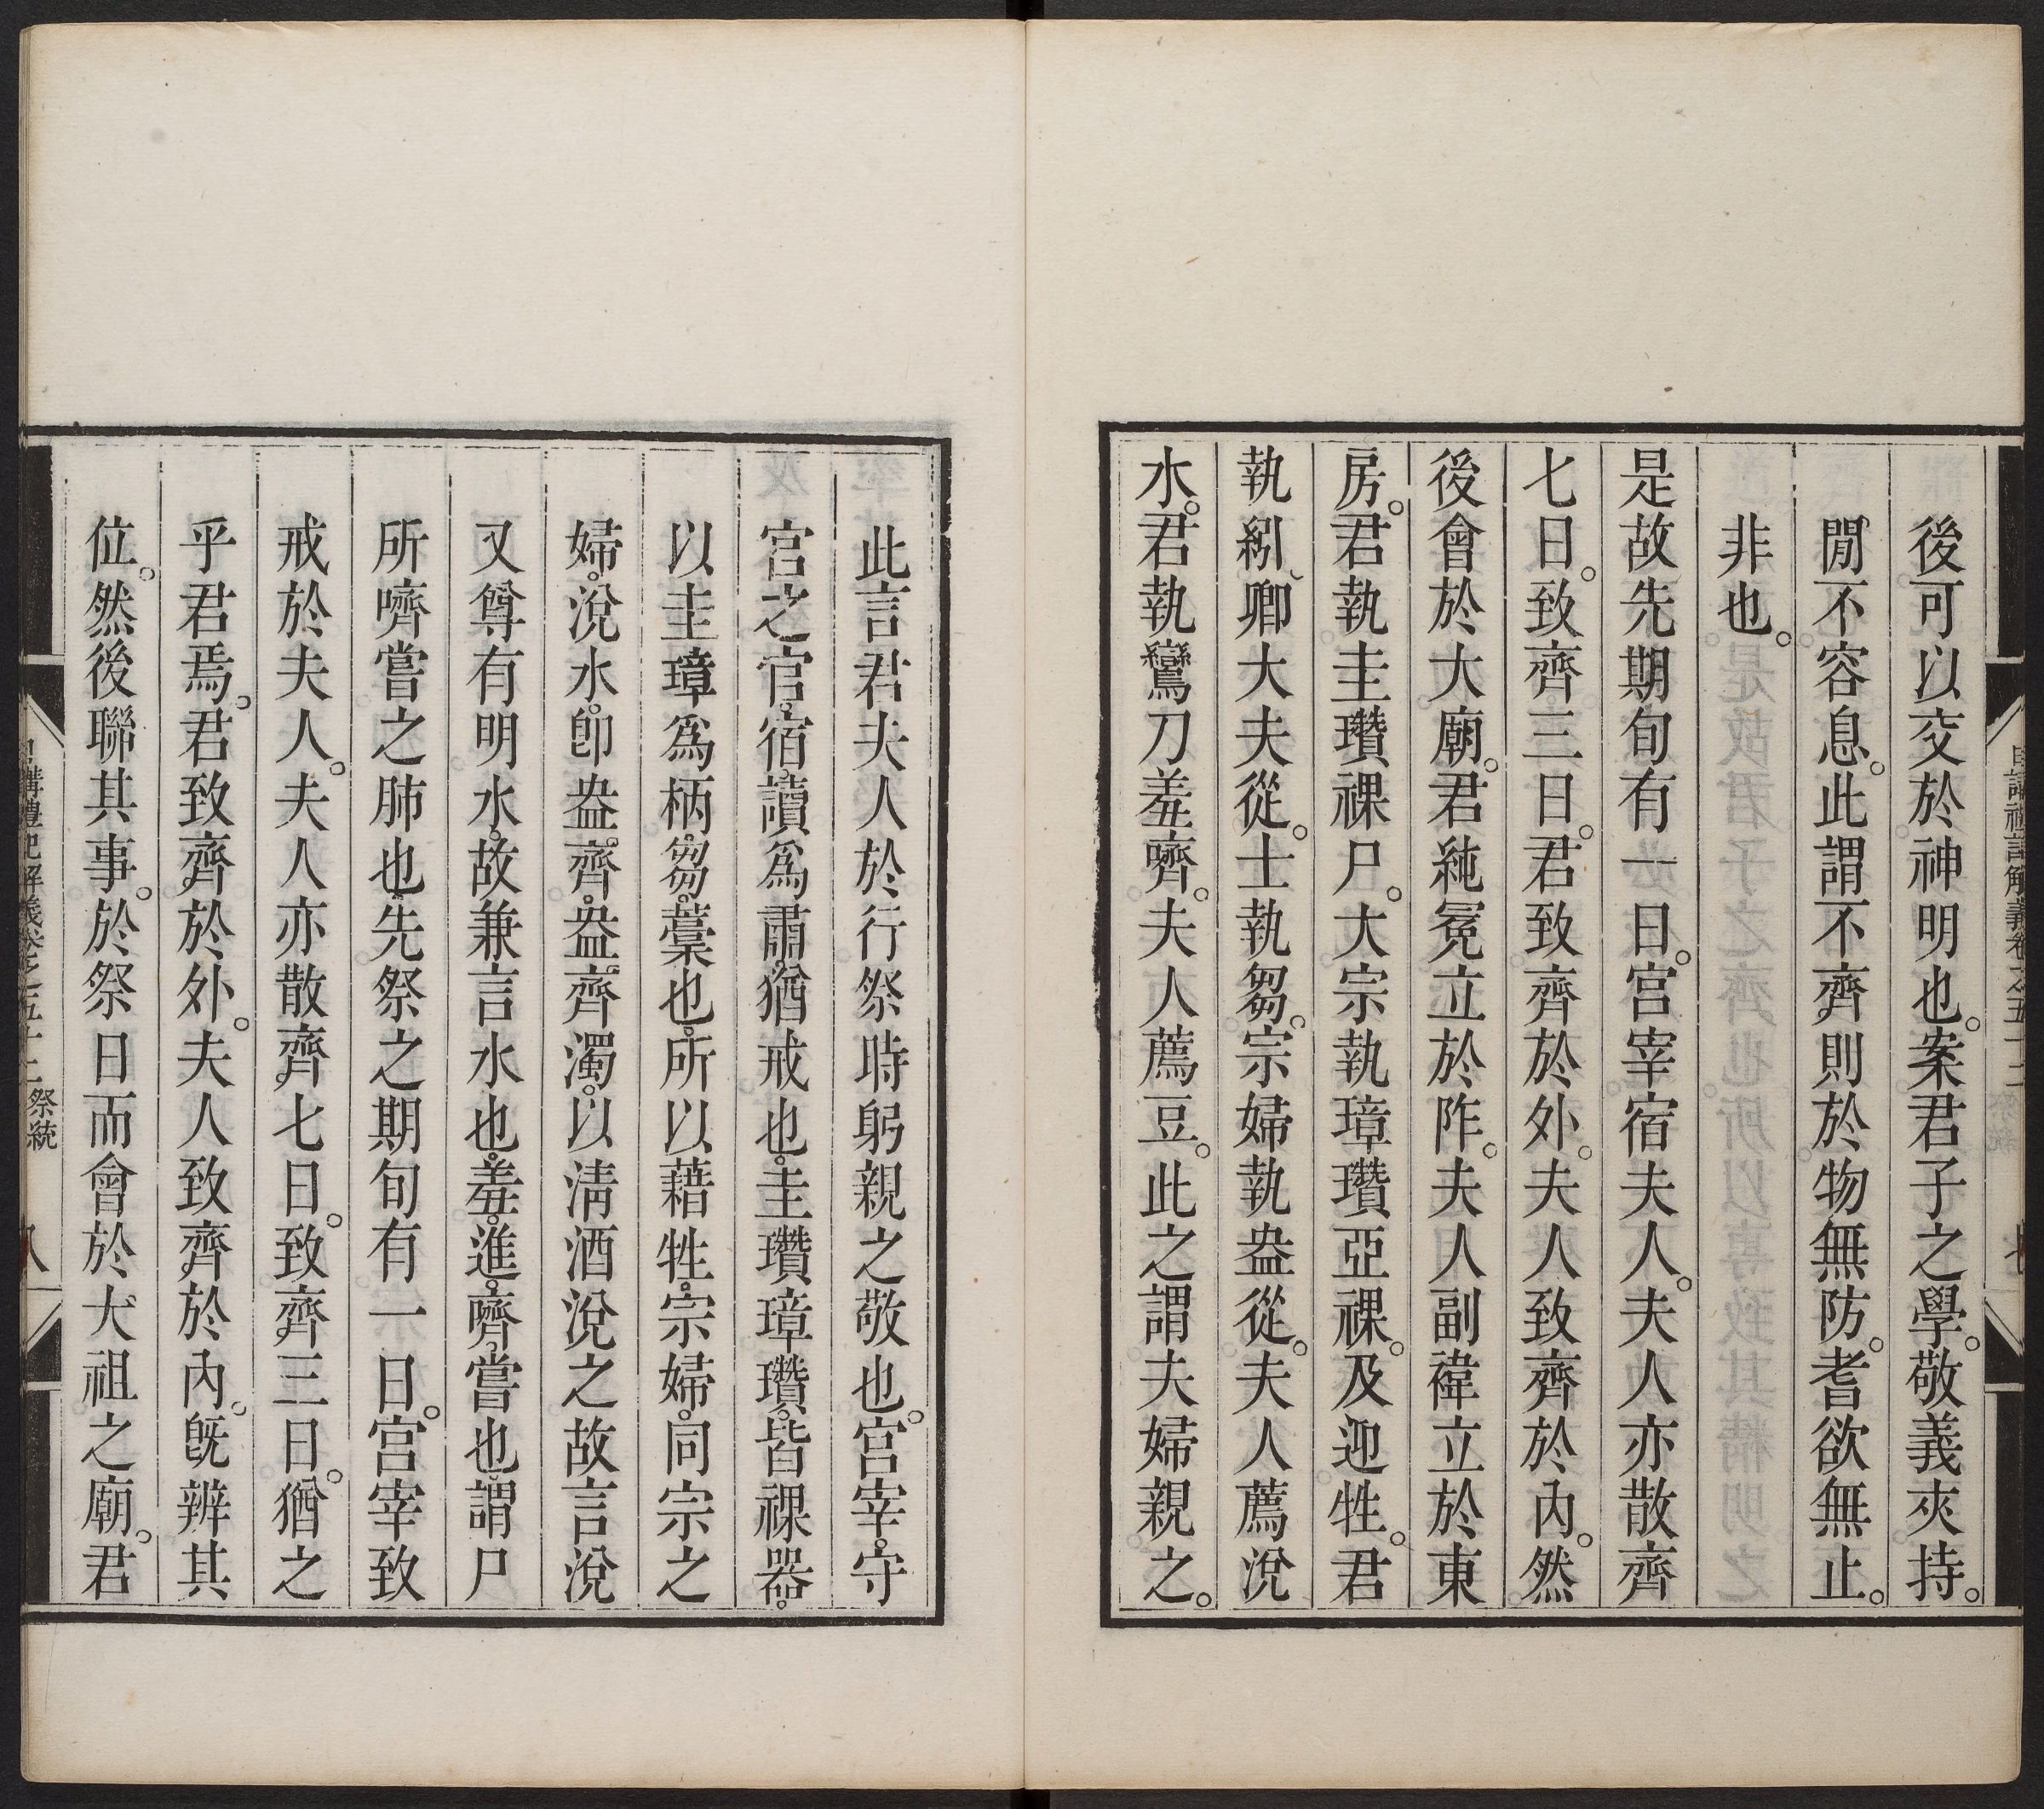 後可以交於神明也。案君子之學。敬義夾持。
閒不容息。此謂不齊。則於物無防。耆欲無止。
非也。
是故先期旬有一日。宮宰宿夫人。夫人亦散齊
七日。致齊三日。君致齊於外。夫人致齊於內。然
後會於大廟。君純冕立於阼。夫人副褘立於東
房。君執圭瓚祼尸。大宗執璋瓚亞祼。及迎牲。君
執紖。卿大夫從。士執芻。宗婦執盎從。夫人薦涗
水。君執鸞刀羞嚌。夫人薦豆。此之謂夫婦親之。
日講禮記解義卷之五十二
祭統
七
此言君夫人於行祭時躬親之敬也。宮宰。守
宮之官。宿。讀爲肅。猶戒也。圭瓚璋瓚。皆祼器。
以圭璋爲柄。芻。藁也。所以藉牲。宗婦。同宗之
婦。涗水。卽盎齊。盎齊濁。以淸酒涗之。故言涗
又尊有明水。故兼言水也。羞。進。嚌。嘗也。謂尸
所嚌嘗之肺也。先祭之期旬有一日。宮宰致
戒於夫人。夫人亦散齊七日。致齊三日。猶之
乎君焉。君致齊於外。夫人致齊於內。旣辨其
位。然後聯其事。於祭日而會於大祖之廟。君
日講禮記解義卷之五十二
祭統
八